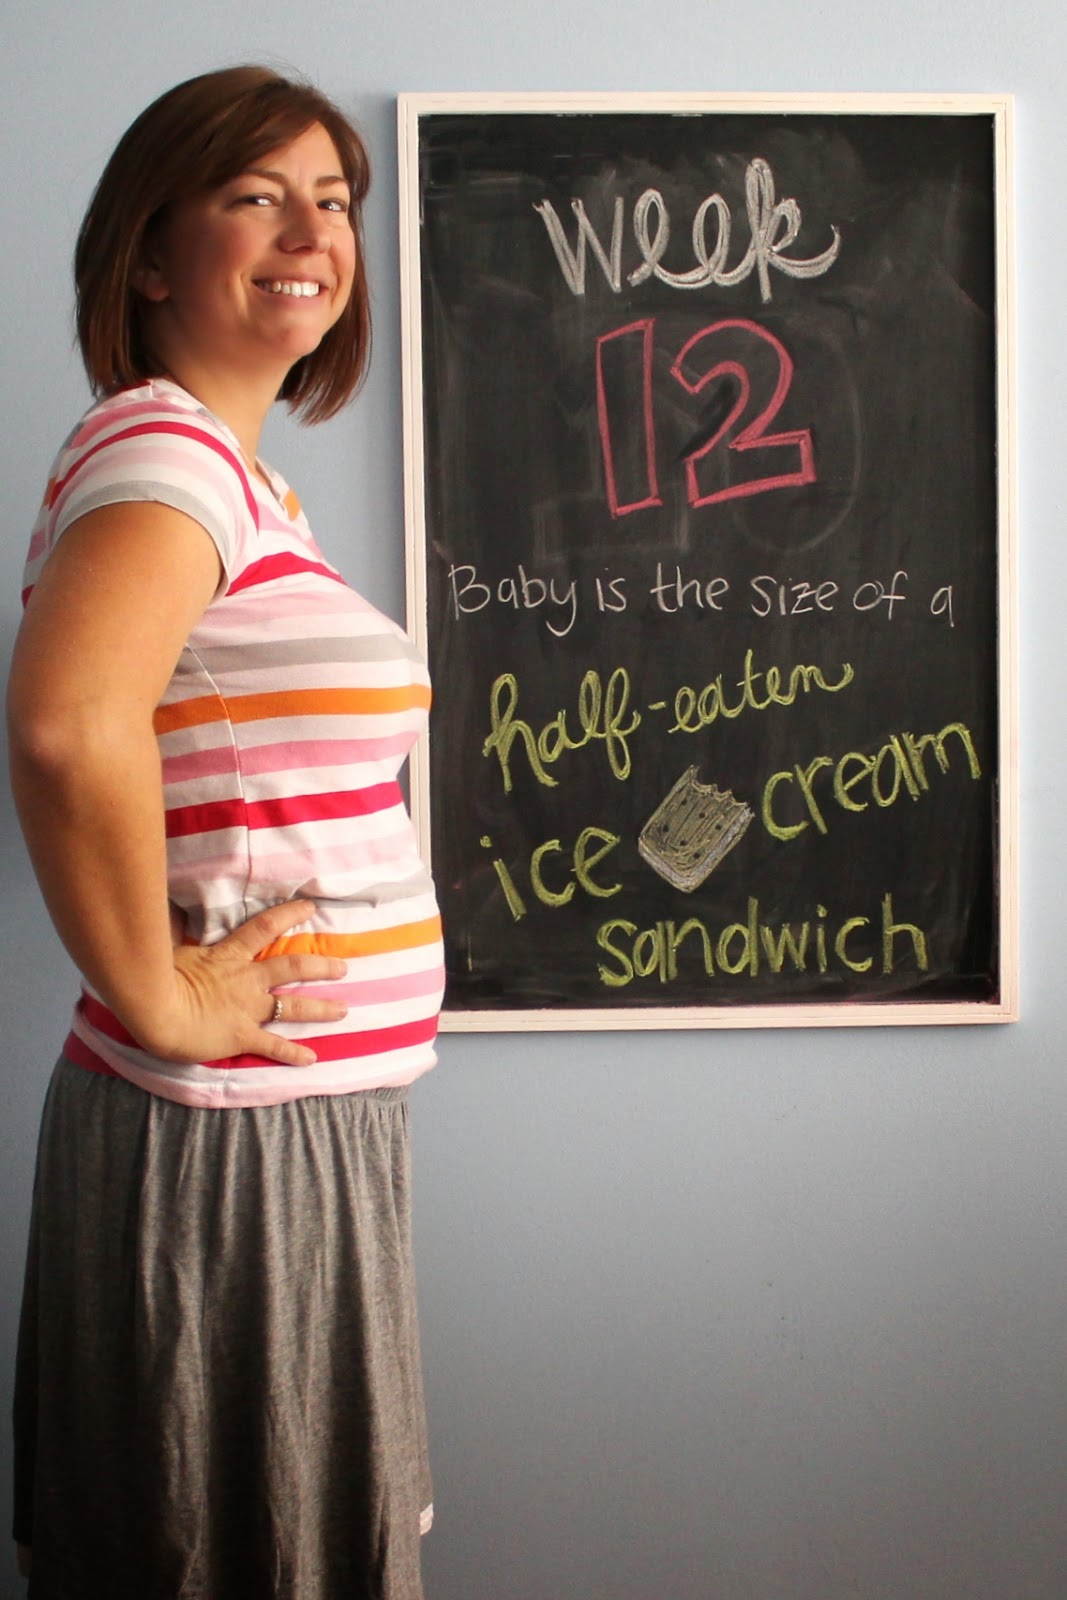 Week
12
Baby is the size of a
half-eaten
ice cream
sandwich